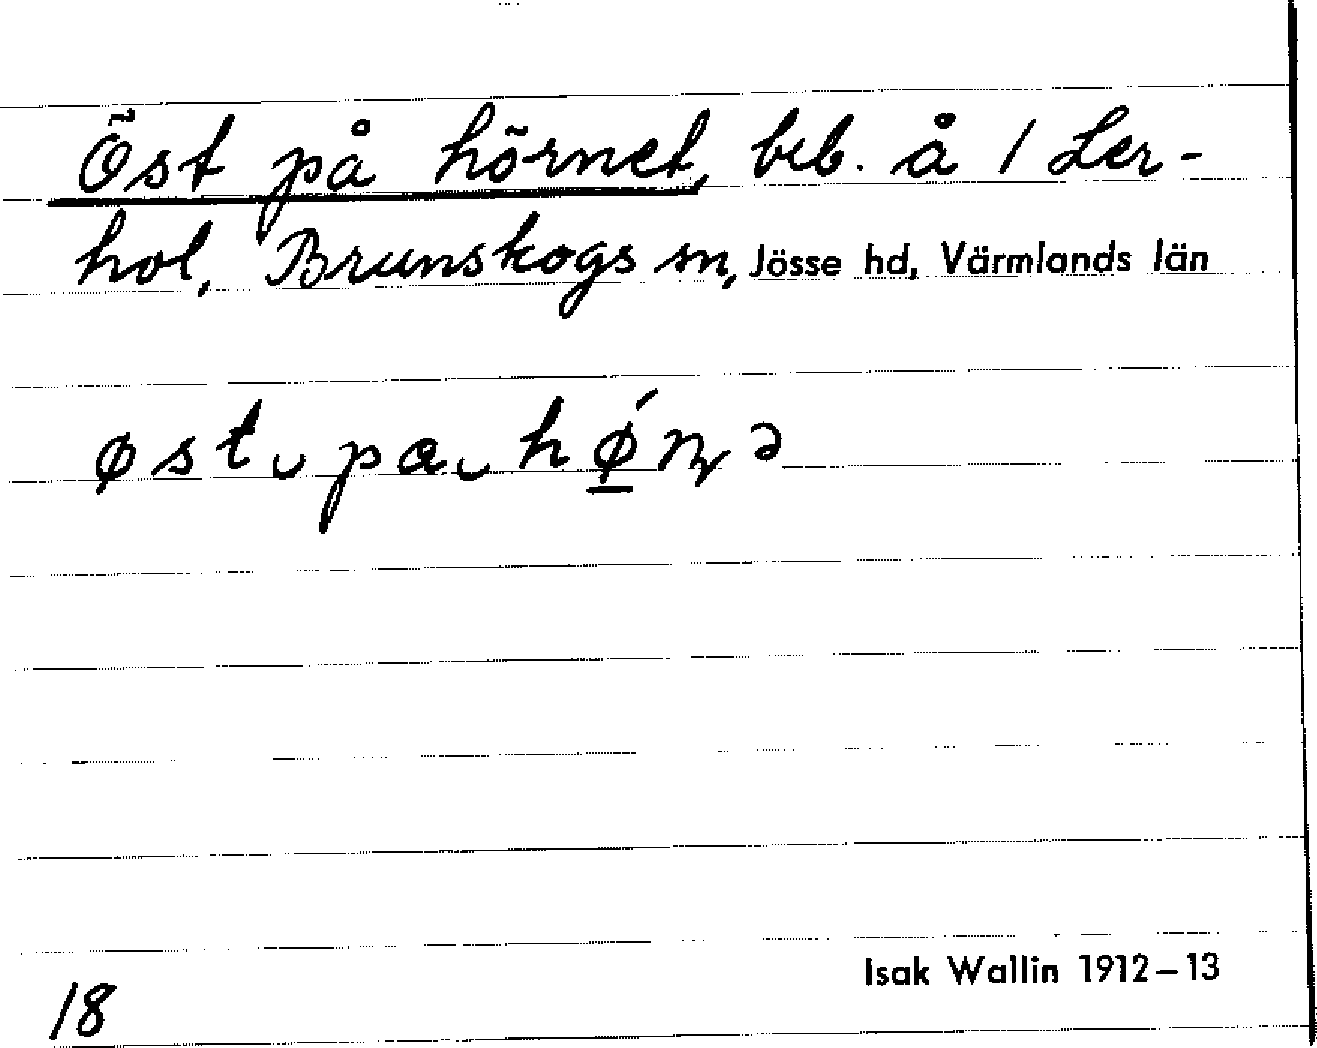 Öst på hörnet, beb. å 1 Ler-
hol, Brunskogs sn, Jösse hd, Värmlands län
øst‿pa‿hǿ̲ɳə
Isak Wallin 1912–13
18